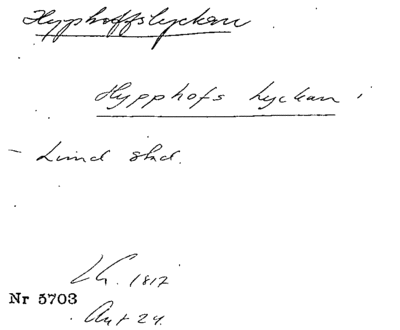 Hypphoffslyckan
Hypphofs Lyckan i
- Lund stad.
LG. 1817
Nr 5703
Akt 24.